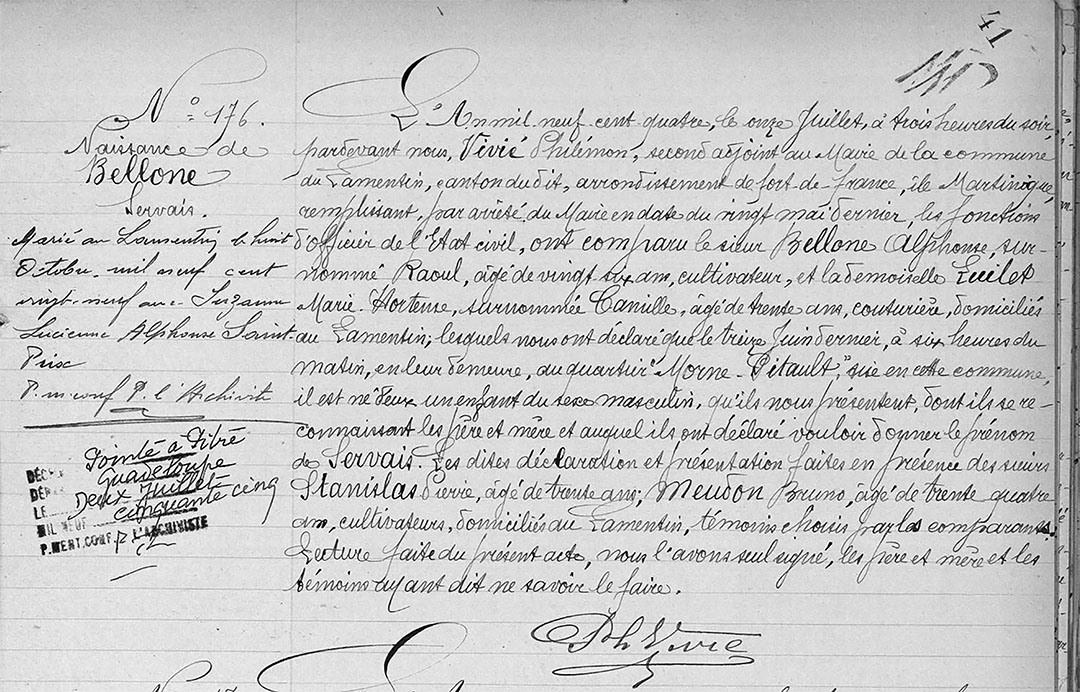 41
N° 176.
Naissance de
Bellone
Servais.
Marié au Lamentin le huit
Octobre mil neuf cent
vingt-neuf avec Suzanne
Lucienne Alphonse Saint-
Prix
P. m. conf P. l'Archiviste
Pointe à Pitre
Guadeloupe
Deux Juillet
cinquante cinq
DÉCÉ
LE
MIL NEUF
P. MENT. CONF. P L'ARCHIVISTE
L'An mil neuf cent quatre, le onze Juillet, à trois heures du soir,
pardevant nous, Vivié Philémon, second adjoint au Maire de la commune
du Lamentin, canton du dit, arrondissement de fort-de-france, île Martinique,
remplissant, par arrêté du Maire en date du vingt mai dernier, les fonctions
d'officier de l'Etat civil, ont comparu le sieur Bellone Alphonse, sur-
nommé Raoul, âgé de vingt six ans, cultivateur, et la demoiselle Luilet
Marie-Hortense, surnommée Canille, âgé de trente ans, couturière, domiciliés
au Lamentin; lesquels nous ont déclaré que le treize Juin dernier, à six heures du
matin, en leur demeure, au quartier "Morne-Pitault," sise en cette commune,
il est né d'eux un enfant du sexe masculin, qu'ils nous présentent, dont ils se re-
connaissent les père et mère et auquel ils ont déclaré vouloir donner le prénom
de Servais. Les dites déclaration et présentation faites en présence des sieurs
Stanislas Pierre, âgé de trente ans; Meudon Bruno, âgé de trente quatre
ans, cultivateurs, domiciliés au Lamentin, témoins choisis par les comparants.
Lecture faite du présent acte, nous l'avons seul signé, les père et mère et les
témoins ayant dit ne savoir le faire.
Ph Vivié